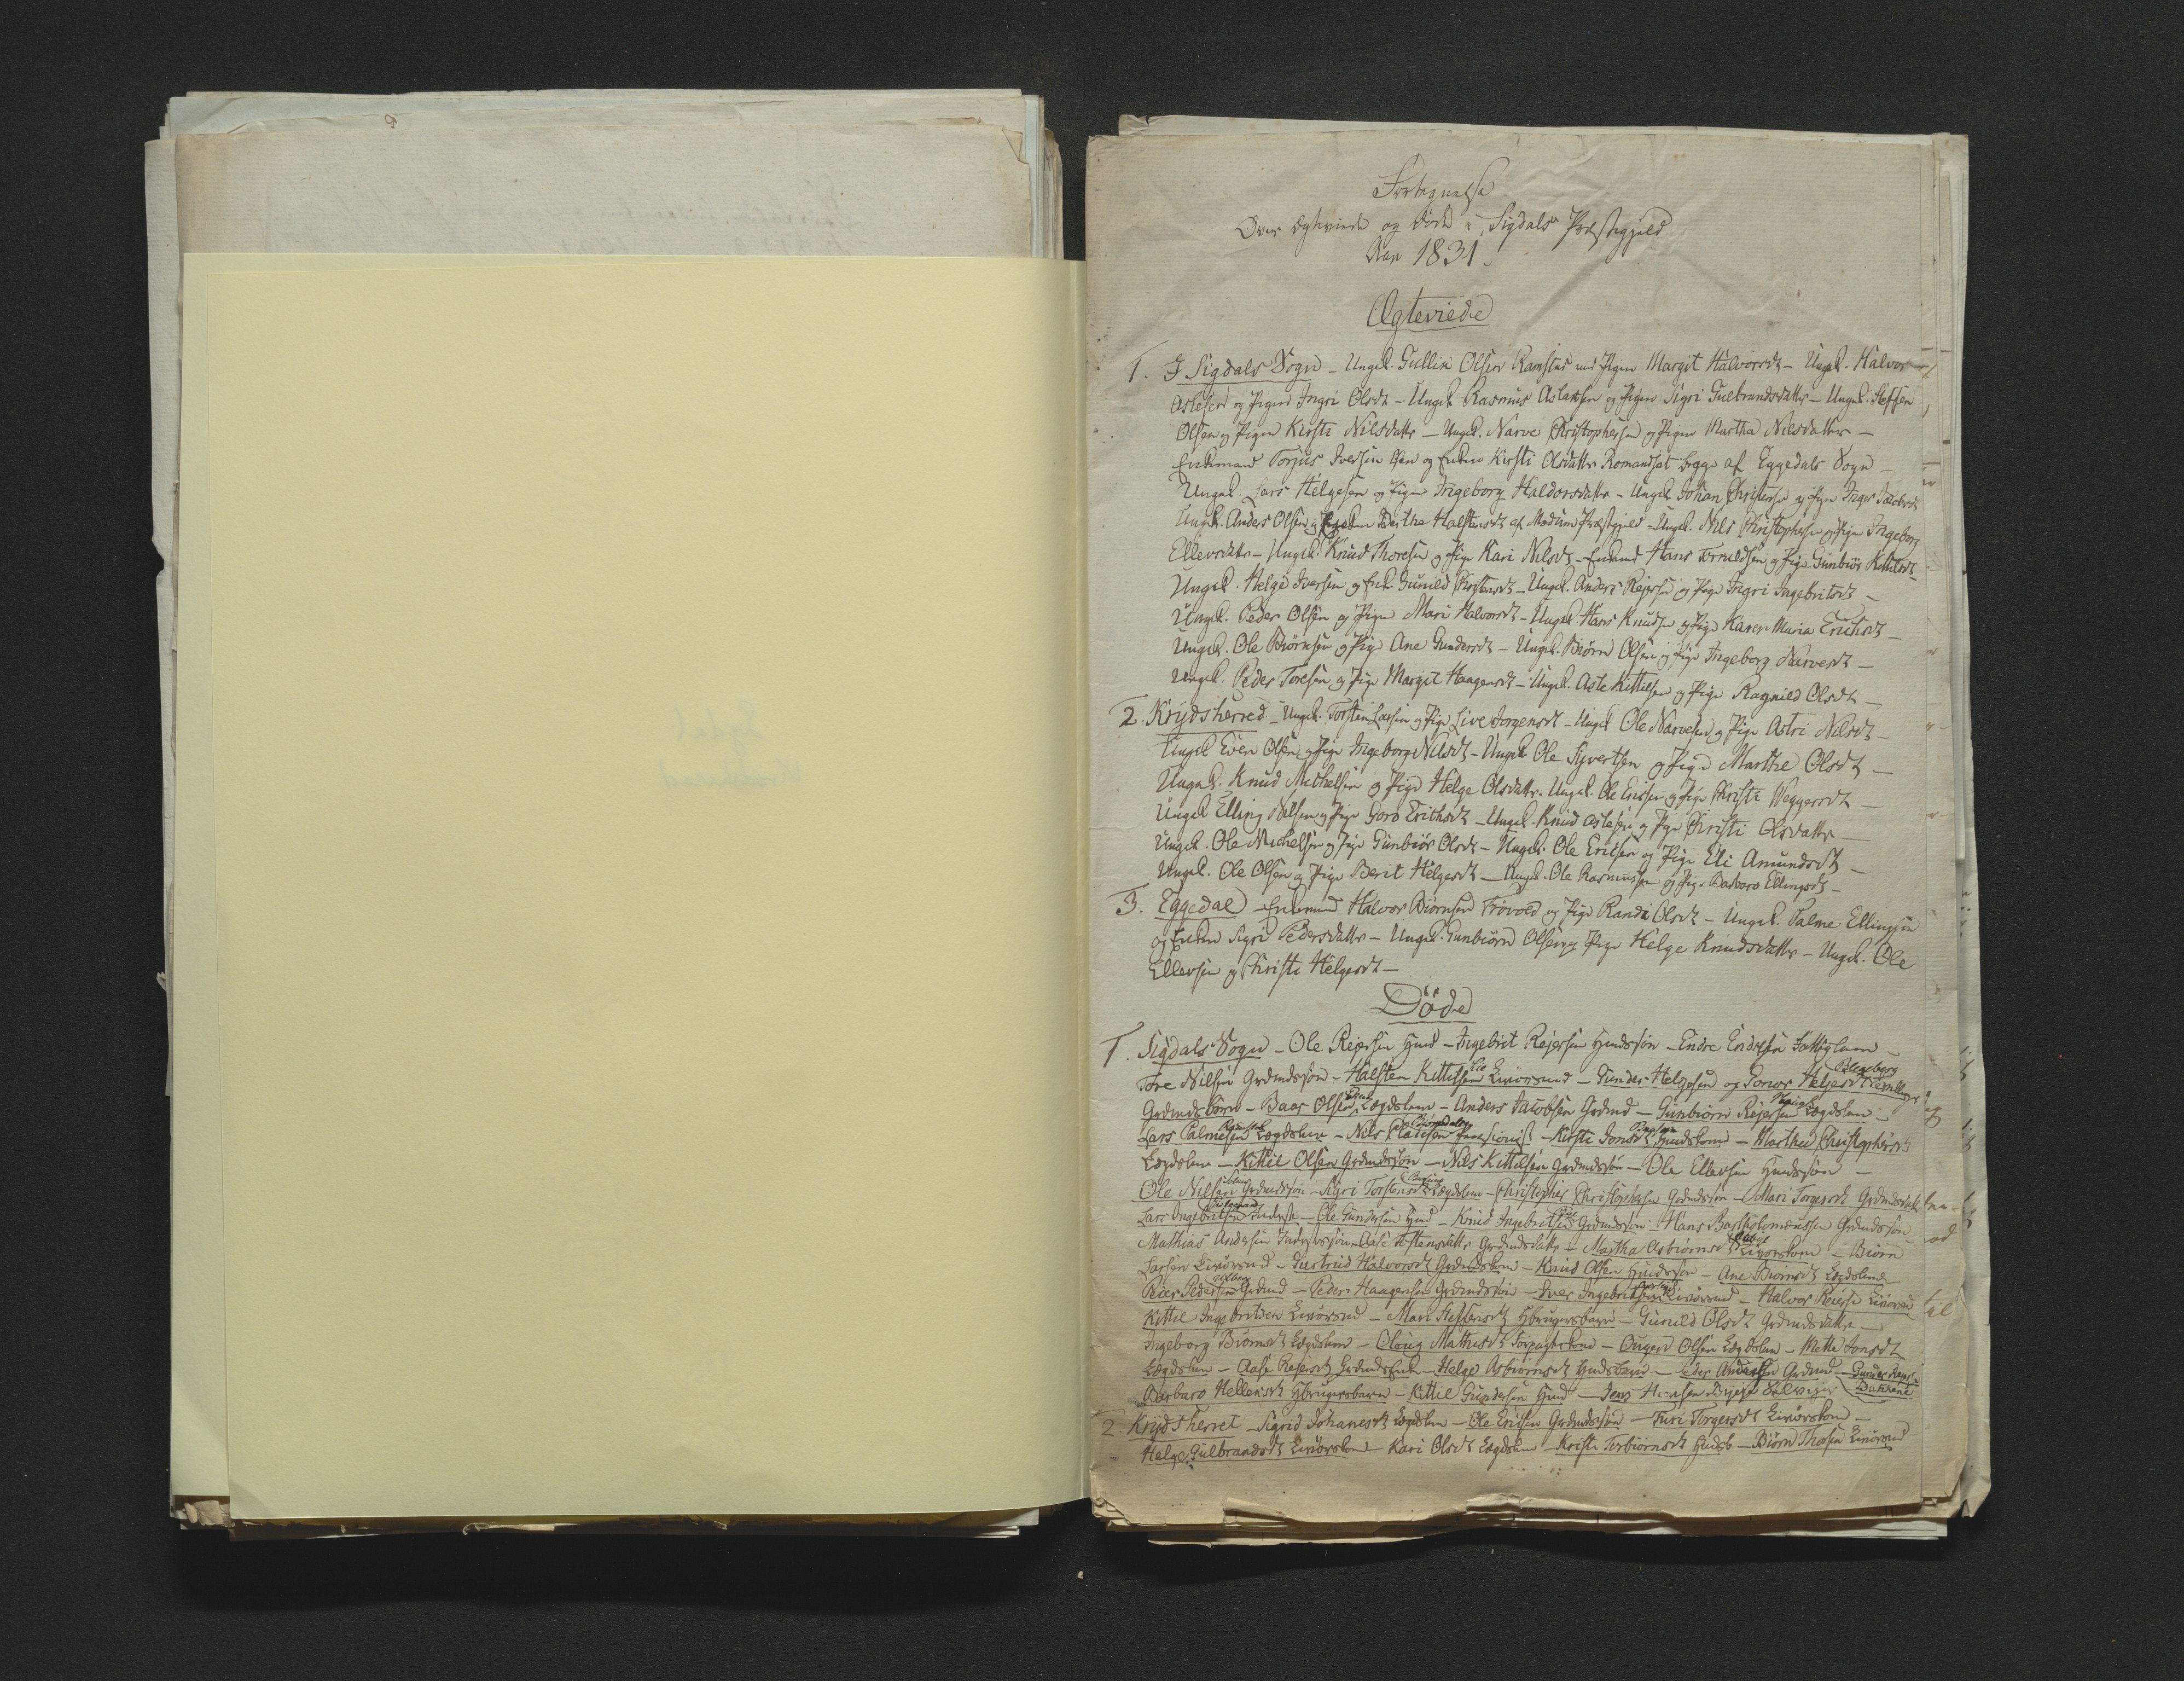 Fortegnelse
Over Ægteviede og Døde i Sigdals Præstegjeld
Aar 1831.
Ægteviede
1. I Sigdals Sogn - Ungk. Gullik Olsen Ramstad med Pigen Margit Halvorsdt - Ungk. Halvor
Aslesen og Pigen Ingri Olsdt - Ungk Rasmus Aslaksen og Pigen Sigri Gulbrandsdatter - Ungk. Steffen
Olsen og Pigen Kirsti Nilsdatter - Ungk. Narve Christophersen og Pigen Martha Nilsdatter -
Enkemand Torjus Iversen og Enken Kirsti Olsdatter begge af Eggedals Sogn -
Ungk Lars Helgesen og Pigen Ingeborg Haldorsdatter - Ungk Johan Christensen og Pige Inger Jacobsdt
Ungk. Anders Olsen og Berthe Halstensdt af Modum Præstegjeld - Ungk. Nils Christophersen og Pige Ingeborg
Ellevsdatter - Ungk. Knud Thoresen og Pige Kari Nilsdt - Enkemd Hans og Pige Gunbiør Kittilsdt
Ungk. Helge Iversen og Enke Gunild - Ungk. Anders Reiersen og Pige Ingri Ingebritsdt -
Ungk. Peder Olsen og Pigen Mari Halvorsdt - Ungk. Hans Knudsen og Pige Karen Maria Erichsdt -
Ungk. Ole Biørnsen og Pige Ane Gundersdt - Ungk. Biørn Olsen og Pige Ingeborg Narvesdt -
Ungk. Peder Toresen og Pige Margit Haagensdt - Ungk. Asle Kittilsen og Pige Ragnild Olsdt -
2. Krydsherred - Ungk. Torsten Larsen og Pige Live Jorgensdt - Ungk Ole Narvesen og Pige Astri Nilsdt -
Ungk Even Olsen og Pige Ingeborg Nilsdt - Ungk Ole Syvertsen og Pige Marthe Olsdt -
Ungk. Knud Michelsen og Pige Helge Olsdatter. Ungk. Ole Ericsen og Pige Christi
Ungk Elling Nilsen og Pige Goro Erichsdt - Ungk. Knud Aslesen og Pige Christi Olsdatter -
Ungk. Ole Michelsen og Pige Gunbiør Olsdt - Ungk. Ole Ericsen og Pige Eli Amundsdt -
Ungk. Ole Olsen og Pige Berit Helgesdt - Ungk. Ole Rasmussen og Pige Barbaro Ellingsdt -
3. Eggedal - Enkemand Halvor Biørnsen Frøvold og Pige Randi Olsdt - Ungk. Palme Ellingsen
og Enken Sigri Pedersdatter - Ungk. Gunbiørn Olsen og Pige Helge Knudsdatter - Ungk. Ole
Ellevsen og Christi Helgesdt -
Døde
1. Sigdals Sogn - Ole Reiersen Hmd - Ingebrit Reiersen Hmdssøn - Endre Endresen Fattiglem -
Tore Nilsen Grdmdssøn - Halsten Kittilsen Lie Livørsmd - Gunder Helgesen og Gonor Helgesdt
Grdmdsbørn - Baar Olsen Lægdslem - Anders Jacobsen Grdmd - Gunbiørn Reiersen Lægdslem -
Lars Palmesen Lægdslem - Nils Pensionist - Kirsti Jonsdt Hmdskone - Marthe Christophersdt
Lægdslem - Kittil Olsen Grdmdssøn - Nils Kittilsen Grdmdssøn - Ole Ellevsen Hmdssøn -
Ole Nilsen Grdmdssøn - Sigri Torstensdt Lægdslem - Christopher Christophersen Grdmdssøn - Mari Torgersdt Grdmdsdatter
Lars Ingebritsen Inderst - Ole Gundersen Hmd - Knud Ingebritsen Grdmdssøn - Hans Bartholomæussen Grdmdssøn -
Mathias Andersen Inderstssøn - Aase Grdmdsdatter - Martha Asbiørnsdt Livørskone - Biørn
Larsen Livørsmd - Giertrud Halvorsdt Grdmdskone - Knud Olsen Hmdssøn - Ane Biørnsdt Lægdslem
Peder Pedersen Grdmd - Peder Haagensen Grdmdssøn - Iver Ingebritsen Livørsmd - Halvor Reiersen Livørsmd
Kittil Ingebritsen Livørsmd - Mari Steffensdt Hbrugersbarn - Gunild Olsdt Grdmdsdatter -
Ingeborg Biørnsdt Lægdslem - Oloug Mathisdt Forpagterkone - Ougen Olsen Lægdslem - Mette Jonsdt
Lægdslem - Aase Reiersdt Grdmdsenke - Helge Asbiørnsdt Hmdsbarn - Peder Andersen Grdmd - Gunder Reiersen
Barbaro Hellensdt Hbrugersbarn - Kittil Gundersen Hmd - Jens Bakkene
2. Krydsherret - Sigrid Johanesdt Lægdslem - Ole Ericsen Grdmdssøn - Turi Torgersdt Livørskone -
Helge Gulbrandsdt Livørskone - Kari Olsdt Lægdslem - Kristi Torbiørnsdt Hmdsb - Biørn Thorsen Livørsmd